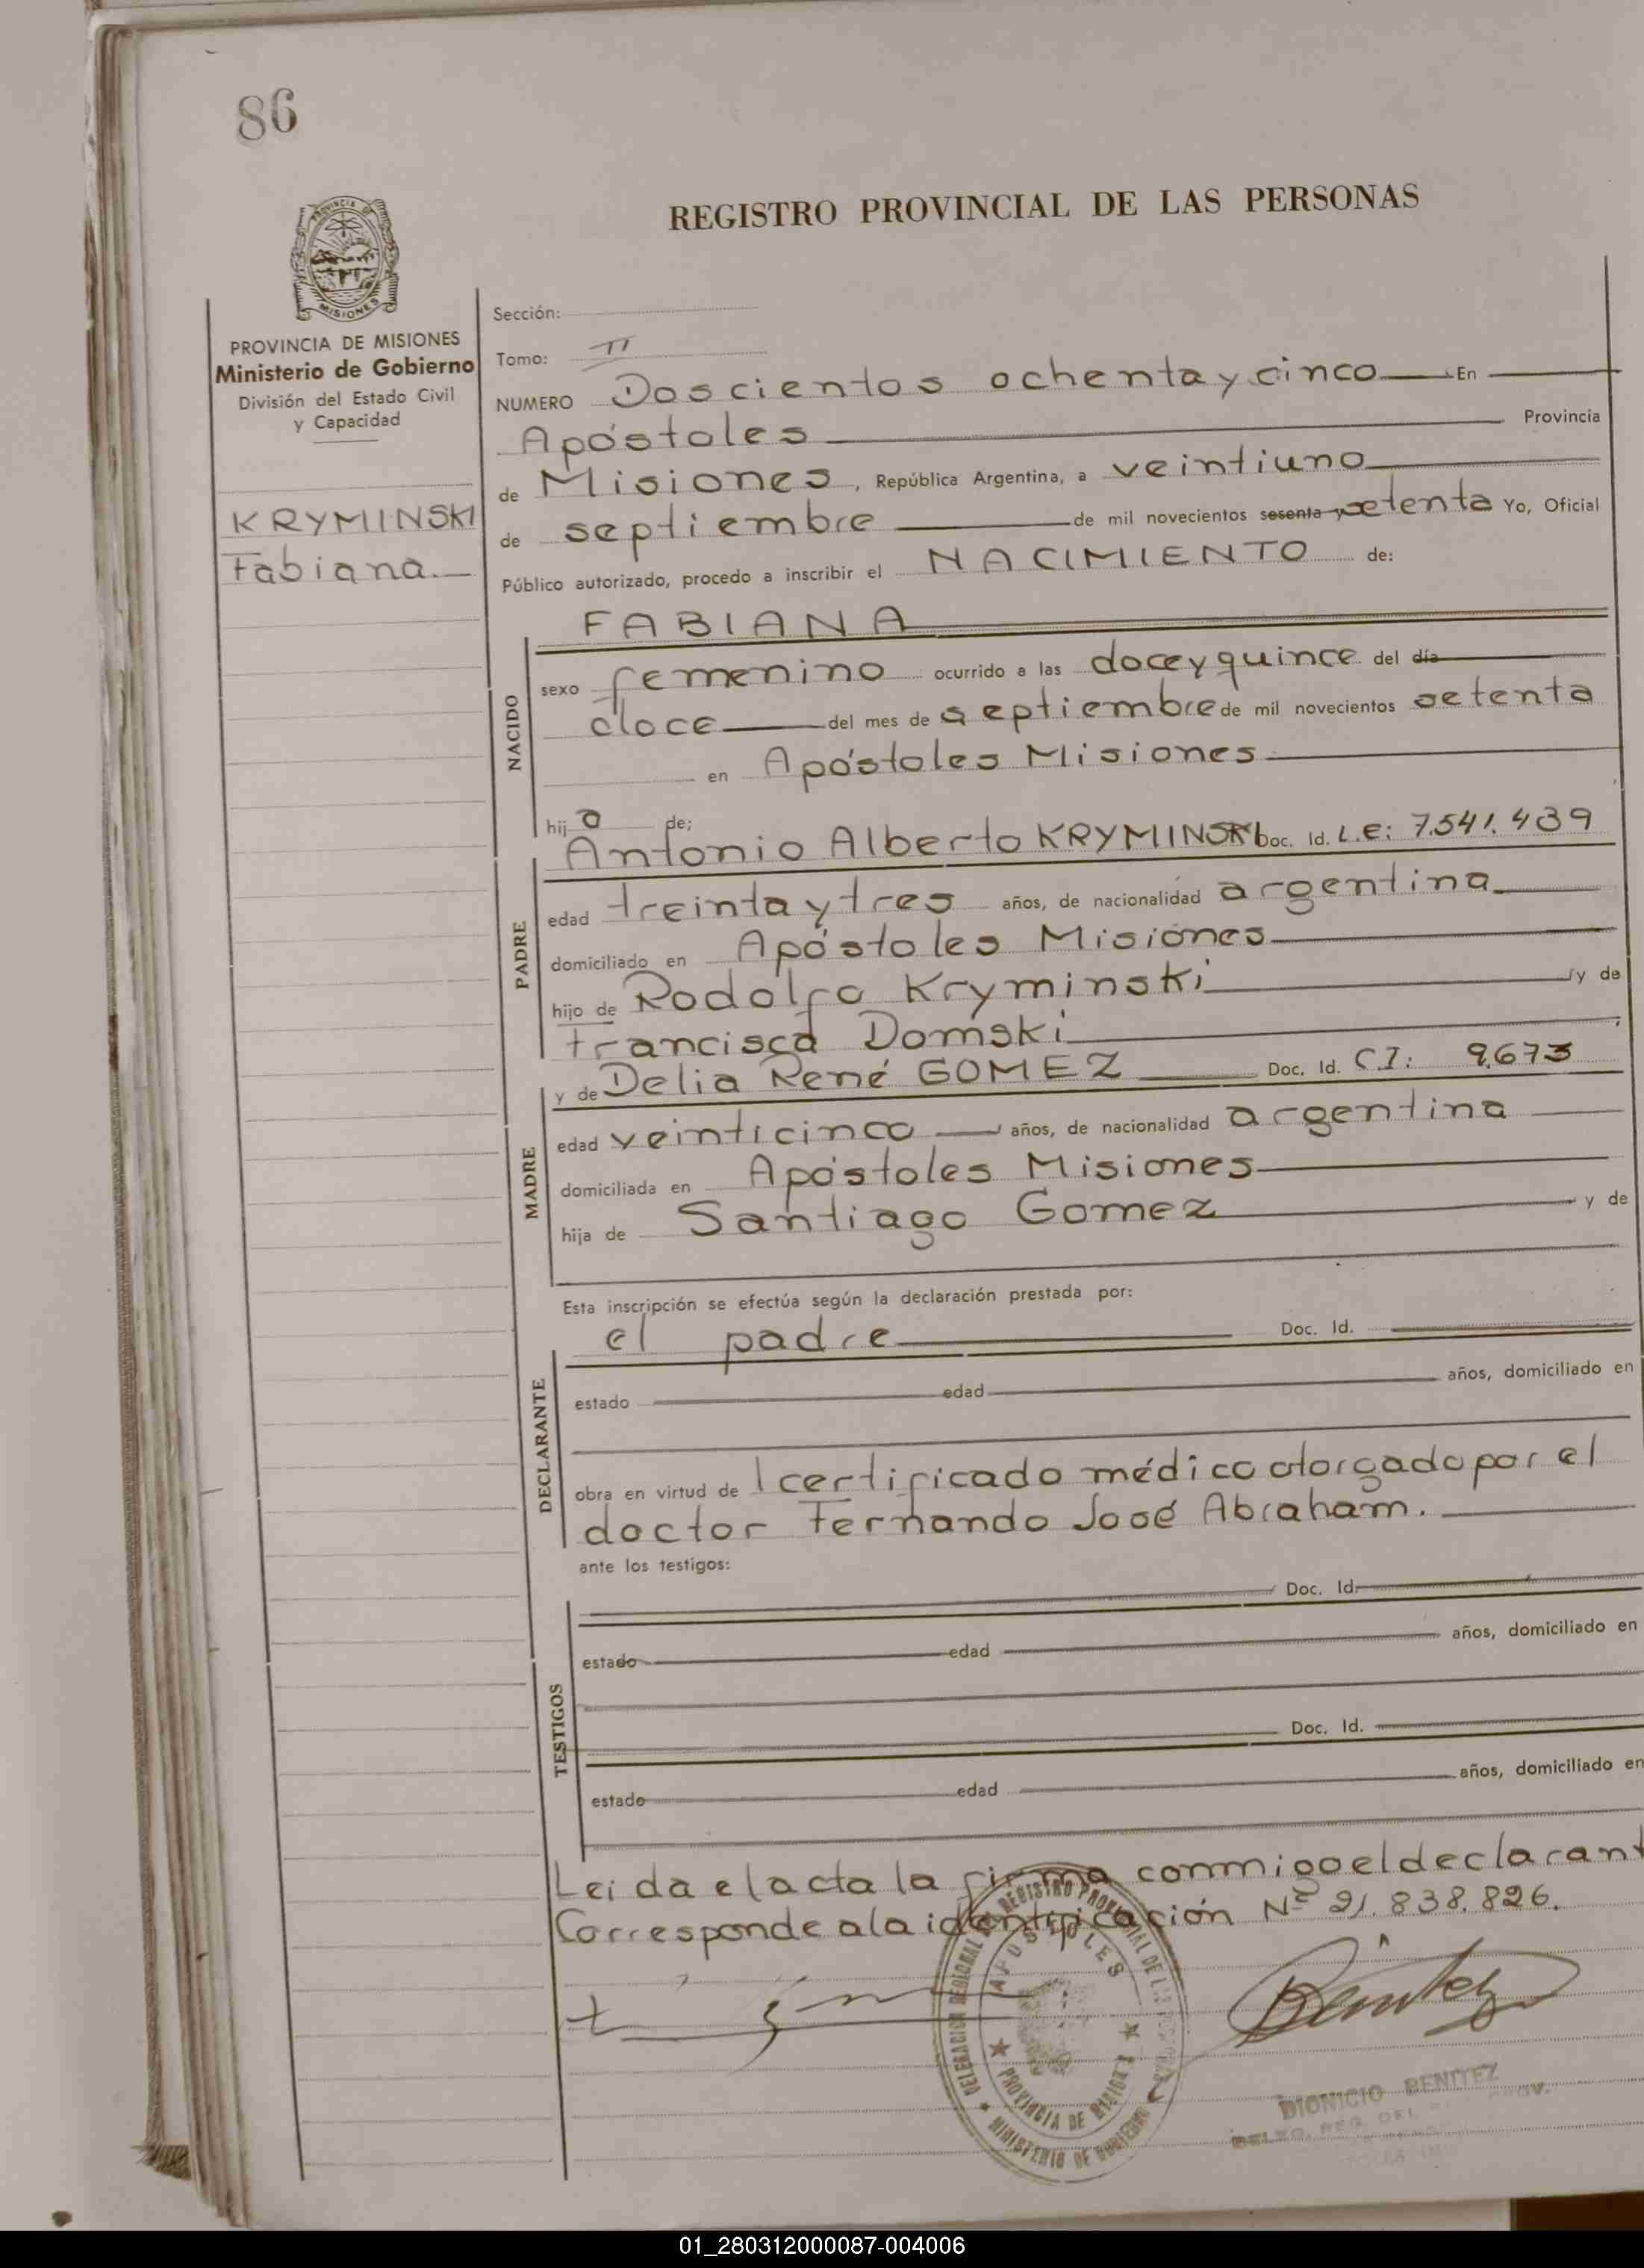 86
REGISTRO PROVINCIAL DE LAS PERSONAS
PROVINCIA DE
MISIONES
PROVINCIA DE MISIONES
Ministerio de Gobierno
División del Estado Civil
y Capacidad
KRYMINSKI
Fabiana.
Sección:
Tomo: II
NUMERO Doscientos ochenta y cinco En
Apóstoles Provincia
de Misiones, República Argentina, a veintiuno
de septiembre de mil novecientos sesenta y setenta Yo, Oficial
Público autorizado, procedo a inscribir el NACIMIENTO de:
FABIANA
NACIDO
sexo femenino ocurrido a las doce y quince del día
doce del mes de septiembre de mil novecientos setenta
en Apóstoles Misiones
hija de;
PADRE
Antonio Alberto KRYMINSKI Doc. Id. L.E: 7.541.439
edad treinta y tres años, de nacionalidad argentina
domiciliado en Apóstoles Misiones
hijo de Rodolfo Kryminski y de
Francisca Domski
MADRE
y de Delia René GOMEZ Doc. Id. C.I: 9.673
edad veinticinco años, de nacionalidad argentina
domiciliada en Apóstoles Misiones
hija de Santiago Gomez y de
Esta inscripción se efectúa según la declaración prestada por:
DECLARANTE
el padre Doc. Id.
estado edad años, domiciliado en
obra en virtud de l certificado médico otorgado por el
doctor Fernando José Abraham.
ante los testigos:
TESTIGOS
Doc. Id.
estado edad años, domiciliado en
Doc. Id.
estado edad años, domiciliado en
Leida el acta la firma conmigo el declarant
Corresponde a la identificación Nº 21.838.826.
DELEGACION REGIONAL REGISTRO PROVINCIAL DE LAS
APOSTOLES
PROVINCIA DE MISIONES
MINISTERIO DE GOBIERNO
Benitez
DIONICIO BENITEZ
REG. DEL PROV.
01_280312000087-004006